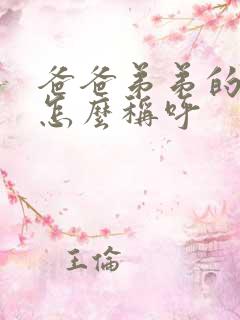 爸爸弟弟的
怎麼稱呼
王倫